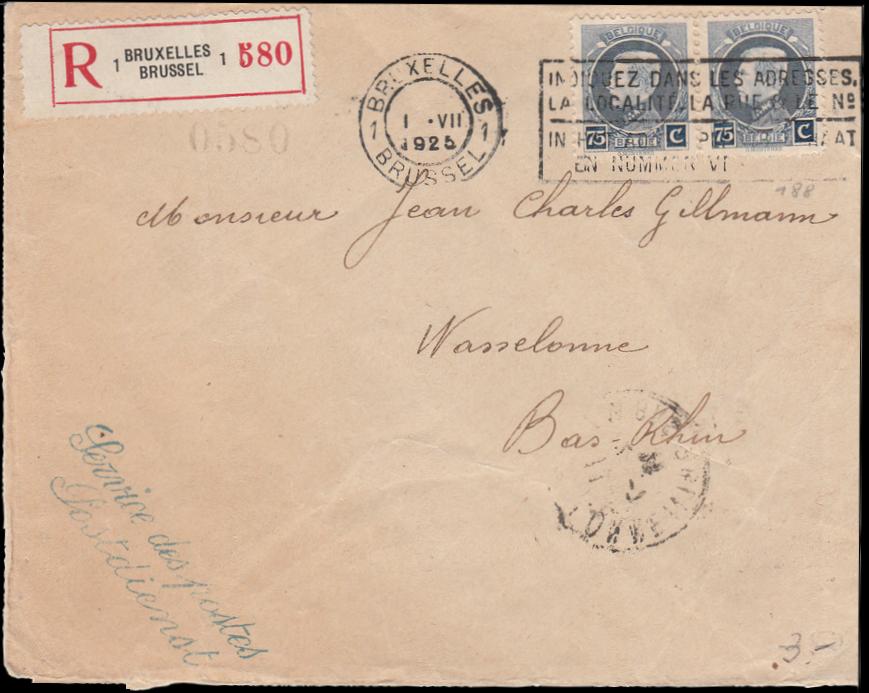 R 1 BRUXELLES BRUSSEL 1 580
0580
BRUXELLES
1 1
1 -VII
1925
BRUSSEL
BELGIQUE BELGIQUE
INDIQUEZ DANS LES ADRESSES,
LA LOCALITE, LA RUE & LE Nº
75 C 75 C
BELGIE BELGIE
EN NUMMER
188
Monsieur Jean Charles Gillmann
Wasselonne
Bas-Rhin
Service des postes
Postdienst
3-